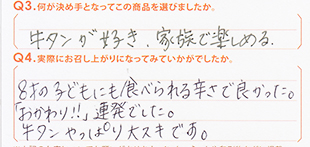 Q3.何が決め手となってこの商品を選びましたか。
牛タンが好き、家族で楽しめる。
Q4.実際にお召し上がりになってみていかがでしたか。
8才の子どもにも食べられる辛さで良かった。
「おかわり!!」連発でした。
牛タンやっぱり大スキです。